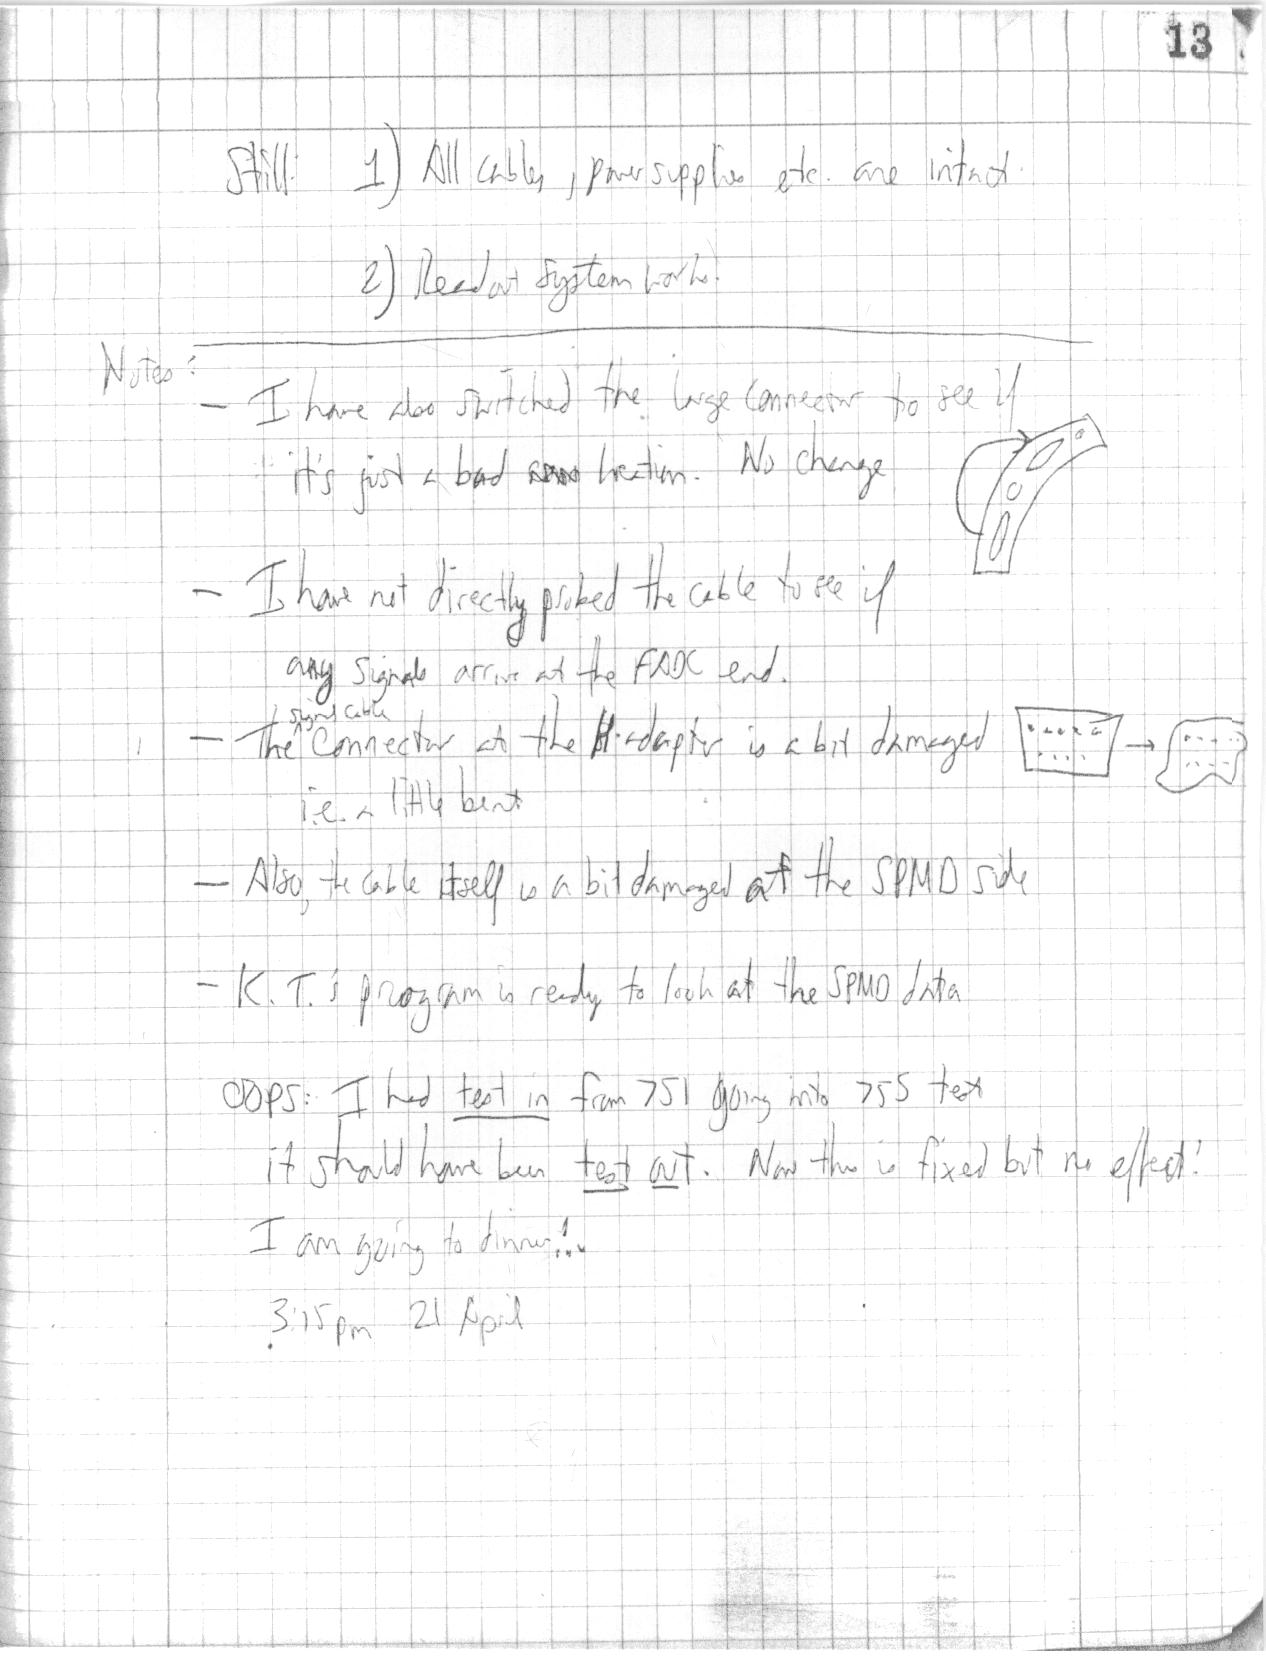 13
Still: 1) All cables, power supplies etc. are intact.
2) Readout system works.
Notes:
- I have also switched the large connector to see if
it's just a bad location. No change
- I have not directly probed the cable to see if
any signals arrive at the FADC end.
signal cable
- The connector at the adaptor is a bit damaged
i.e. a little bent
- Also, the cable itself is a bit damaged at the SPMD side
- K. T.'s program is ready to look at the SPMD data
OOPS: I had test in from 751 going into 755 test
it should have been test out. Now this is fixed but no effect!
I am going to dinner!...
3:15pm 21 April